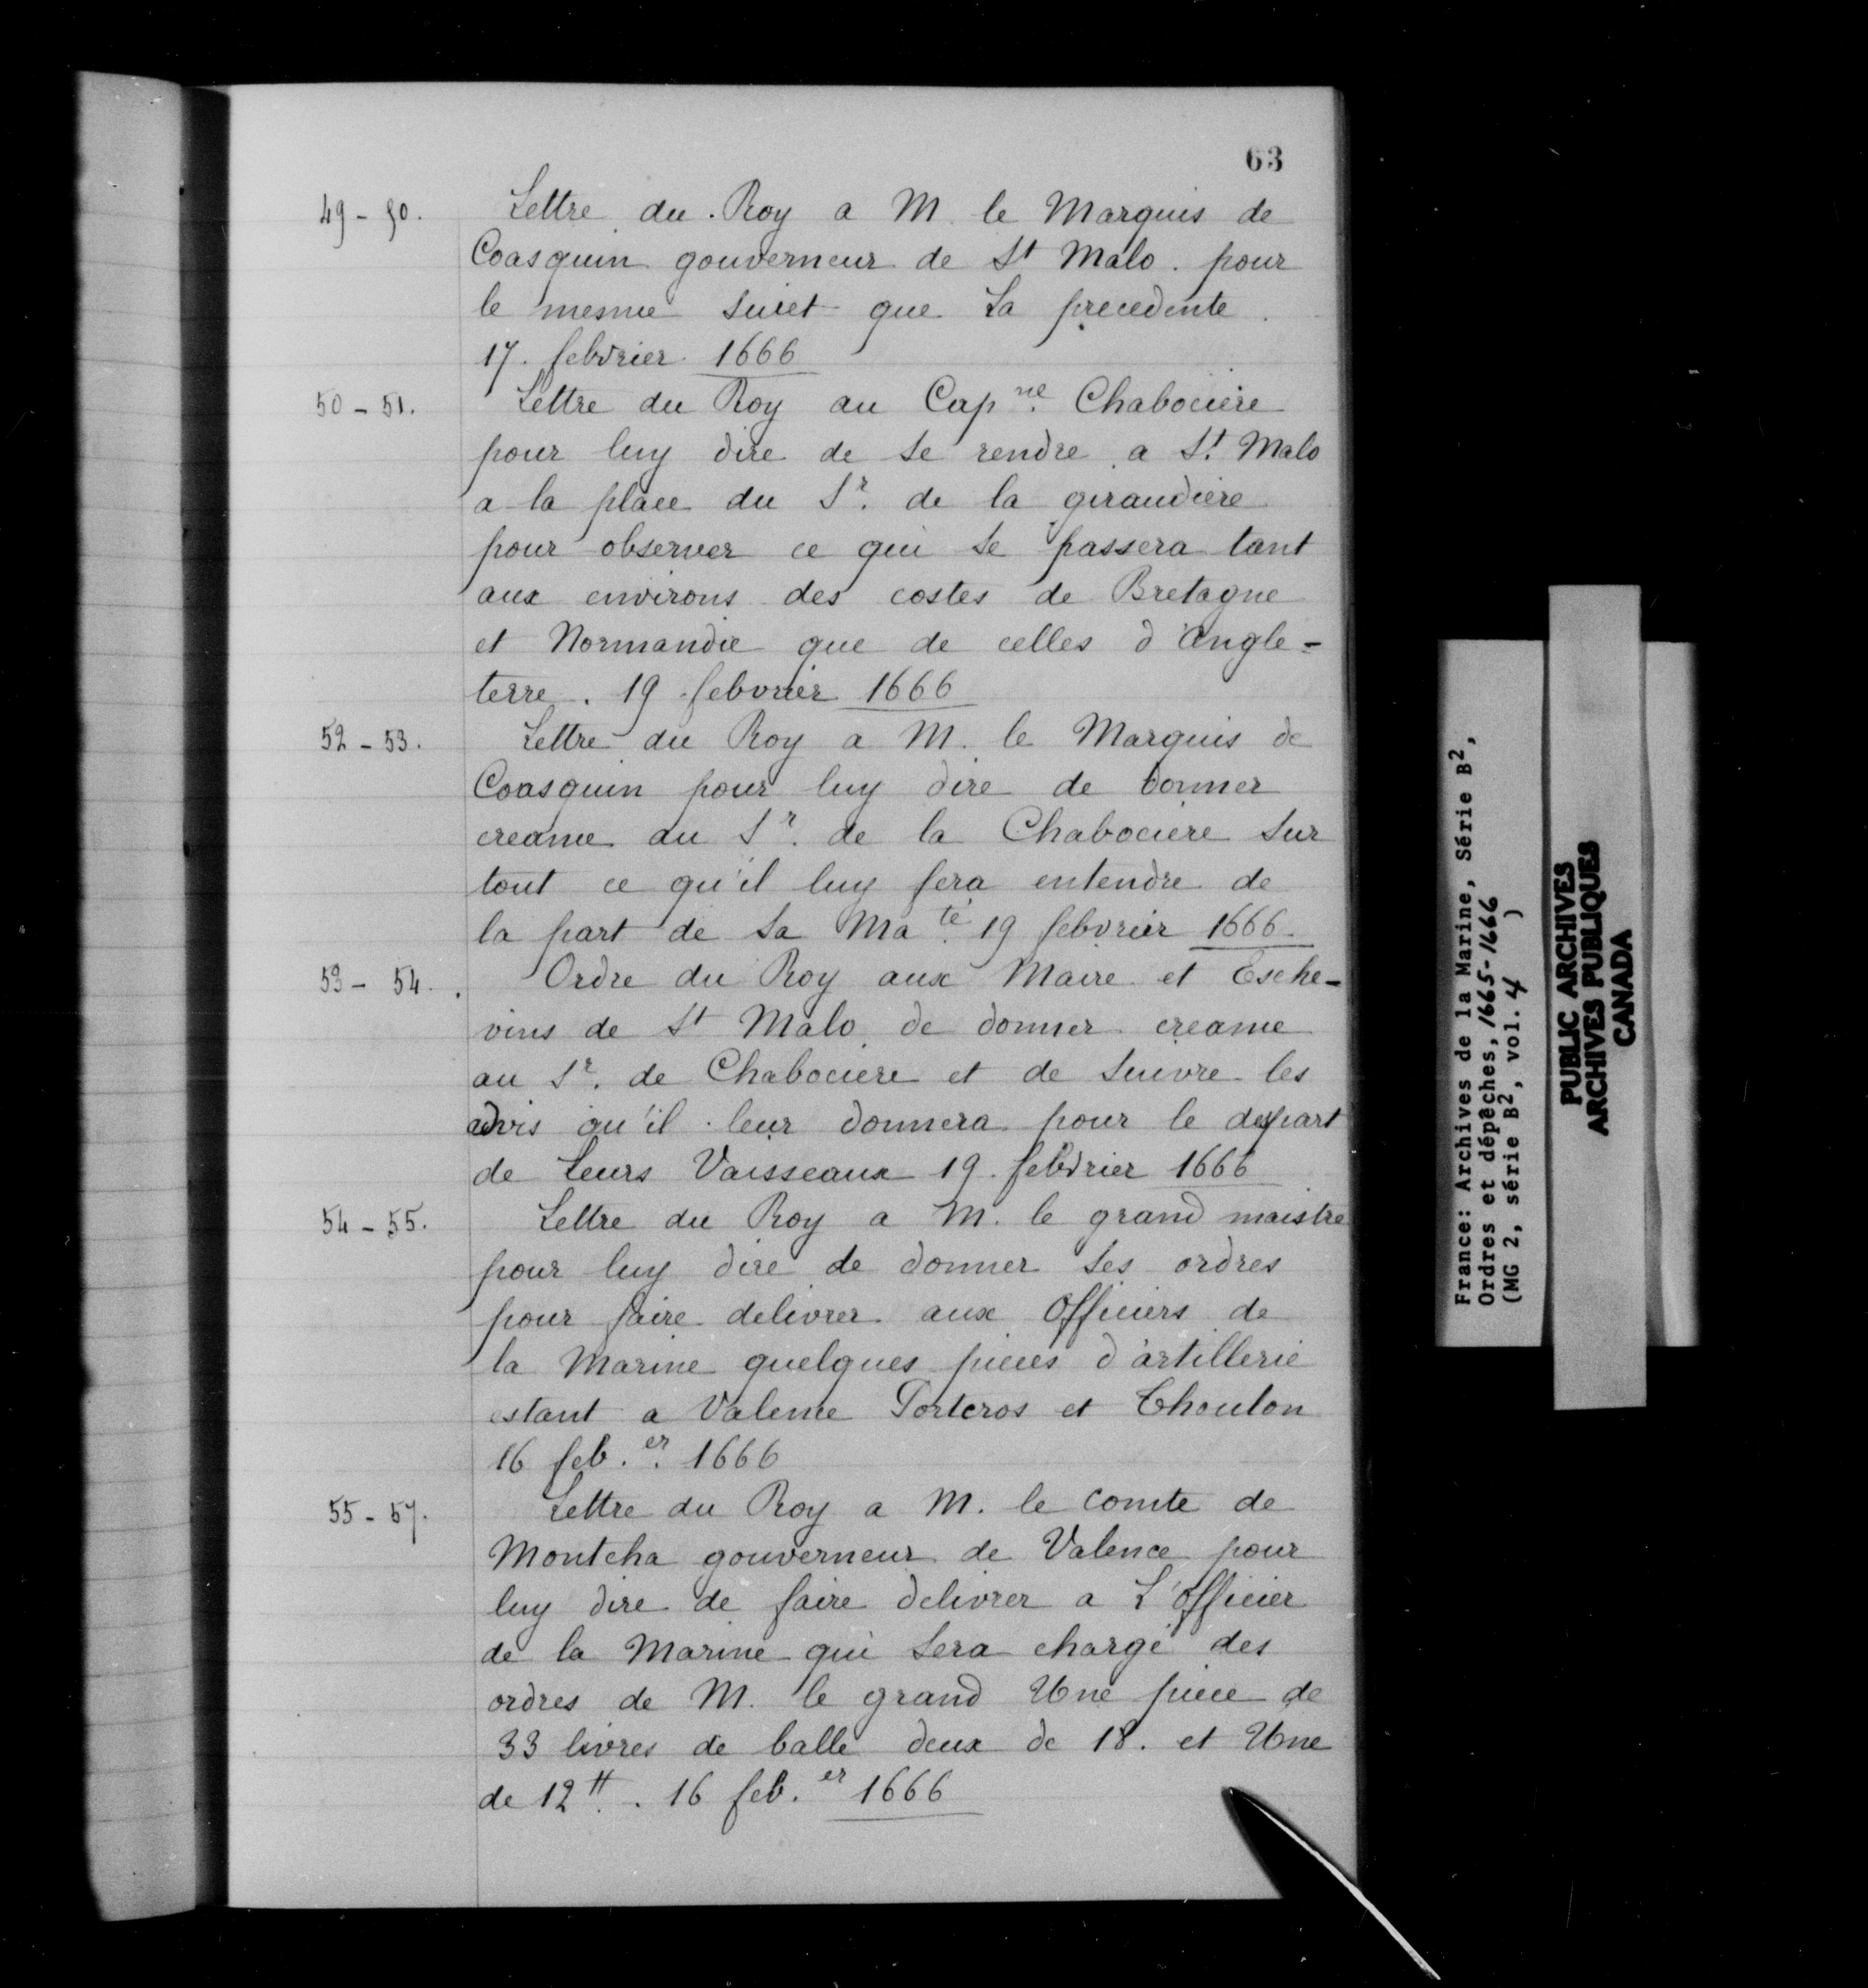 63
49 - 50. Lettre du Roy a M. le Marquis de
Coasquin gouverneur de St Malo. pour
le mesme suiet que La precedente.
17. febvrier 1666
50 - 51. Lettre du Roy au Capne. Chabociere
pour luy dire de se rendre a St. Malo
a la place du Sr. de la giraudiere
pour observer ce qui se passera tant
aux environs des costes de Bretagne
et Normandie que de celles d'Angle-
terre. 19 febvrier 1666
52 - 53. Lettre du Roy a M. le Marquis de
Coasquin pour luy dire de donner
creance au Sr. de la Chabociere sur
tout ce qu'il luy fera entendre de
la part de Sa Mate. 19 febvrier 1666.
53 - 54. Ordre du Roy aux Maire et Esche-
vins de St Malo de donner creance
au Sr. de Chabociere et de suivre les
advis qu'il leur donnera pour le depart
de Leurs Vaisseaux 19. febvrier 1666
54 - 55. Lettre du Roy a M. le grand maistre
pour luy dire de donner ses ordres
pour faire delivrer aux Officiers de
la Marine quelques pieces d'artillerie
estant a Valence Portcros et Thoulon
16 feb.er. 1666
55 - 57. Lettre du Roy a M. le comte de
Montcha gouverneur de Valence pour
luy dire de faire delivrer a L'officier
de la Marine qui sera chargé des
ordres de M. le grand Une piece de
33 livres de balle deux de 18. et Une
de 12 ₶. 16 feb.er 1666
France: Archives de la Marine, Série B2,
Ordres et dépêches, 1665-1666
(MG 2, série B2, vol. 4 )
PUBLIC ARCHIVES
ARCHIVES PUBLIQUES
CANADA